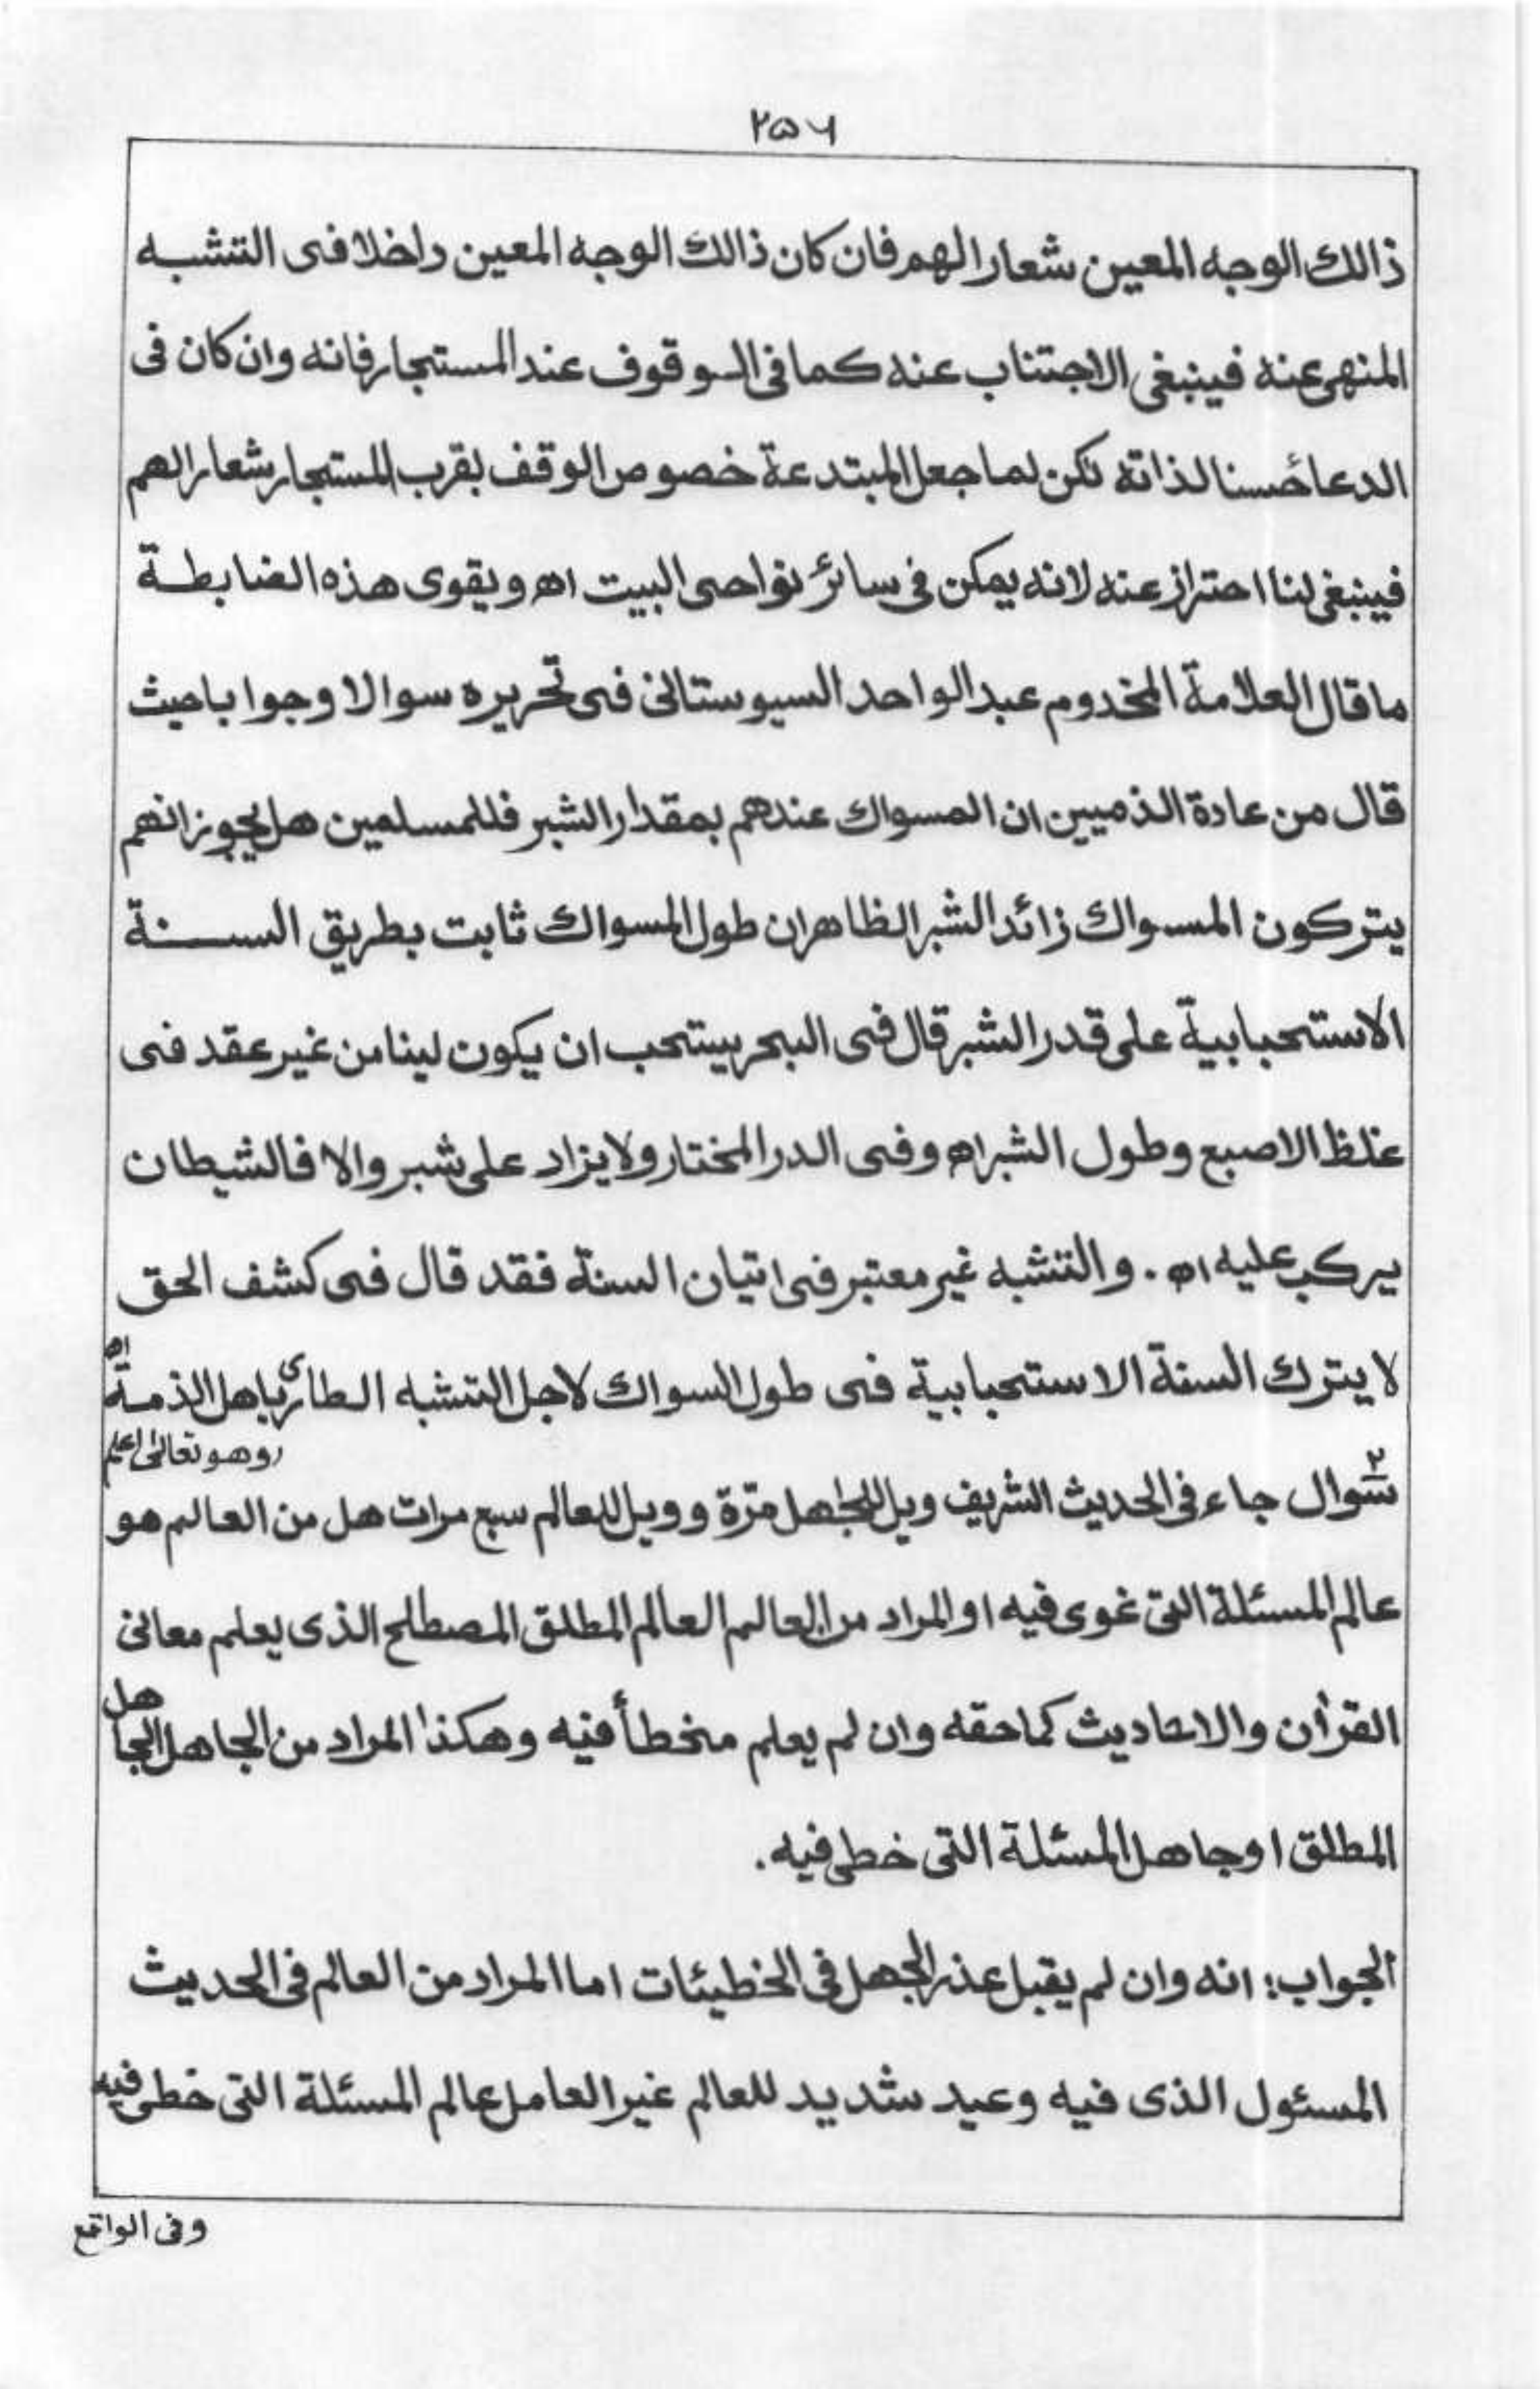 ۲۵۶
ذالك الوجه المعين شعارا لهم فان كان ذالك الوجه المعين داخلا فى التشبه
المنهى عنه فينبغى الاجتناب عنه كما فى الوقوف عند المستجار فانه وان كان فى
الدعا حسنا لذاته لكن لما جعل المبتدعة خصوص الوقف بقرب المستجار شعارا لهم
فينبغى لنا احتراز عنه لانه يمكن فى سائر نواحى البيت اه ويقوى هذه الضابطة
ما قال العلامة المخدوم عبد الواحد السيوستانى فى تحريره سوالا وجوابا حيث
قال من عادة الذميين ان المسواك عندهم بمقدار الشبر فللمسلمين هل يجوز انهم
يتركون المسواك زائد الشبر الظاهر ان طول المسواك ثابت بطريق السنة
الاستحبابية على قدر الشبر قال فى البحر يستحب ان يكون لينا من غير عقد فى
غلظ الاصبع وطول الشبر اه وفى الدر المختار ولا يزاد على شبر والا فالشيطان
يركب عليه اه . والتشبه غير معتبر فى اتيان السنة فقد قال فى كشف الحق
لا يترك السنة الاستحبابية فى طول السواك لاجل التشبه الطارئ باهل الذمة اه
وهو تعالىٰ اعلم
سوال ۲ جاء فى الحديث الشريف ويل للجاهل مرّة و ويل للعالم سبع مرات هل من العالم هو
عالم المسئلة التى غوى فيه او المراد من العالم العالم المطلق المصطلح الذى يعلم معانى
القرأن والاحاديث كما حقه وان لم يعلم مخطأ فيه وهكذا المراد من الجاهل الجاهل
المطلق او جاهل المسئلة التى خطى فيه.
الجواب: انه وان لم يقبل عذر الجهل فى الخطيئات اما المراد من العالم فى الحديث
المسئول الذى فيه وعيد شديد للعالم غير العامل عالم المسئلة التى خطى فيه
وفى الواقع